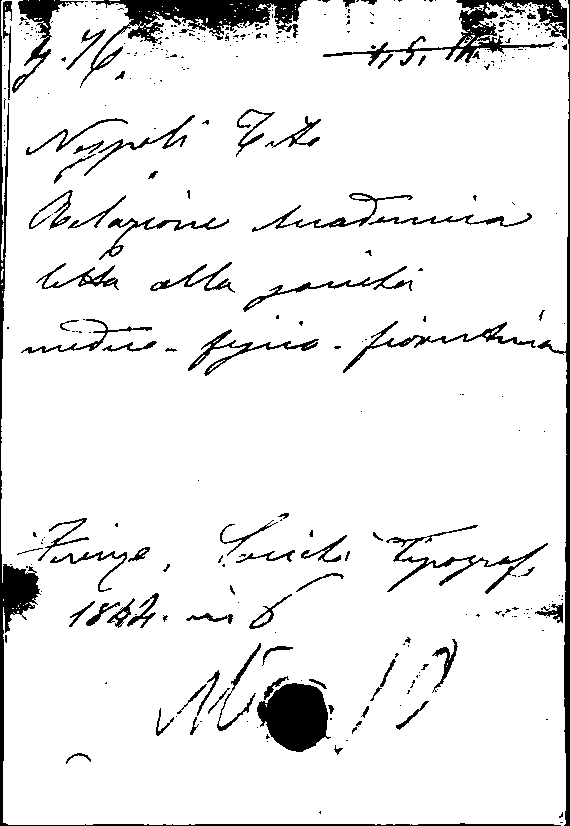 y. 76. 1, 5, 14.
Neppoli Tito
Relazione Accademica
letta alla società
medico-fisico-fiorentina
Firenze, Società Tipograf.
1844. in 8